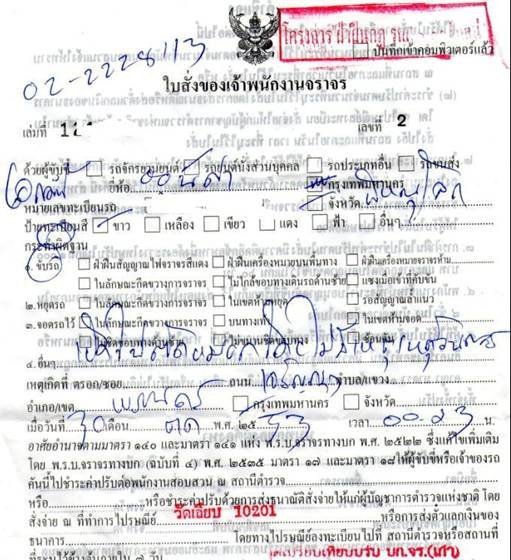 02-2228113
โครงการ ฝ่าฝืนกฎ
บันทึกเข้าคอมพิวเตอร์แล้ว
ใบสั่งของเจ้าพนักงานจราจร
เล่มที่
เลขที่ 2
ด้วยผู้ขับขี่ รถจักรยานยนต์ รถยนต์นั่งส่วนบุคคล รถประเภทอื่น รถขนส่ง
ยี่ห้อ ฮอนด้า กรุงเทพมหานคร
หมายเลขทะเบียนรถ จังหวัด พิษณุโลก
ป้ายทะเบียนสี ขาว เหลือง เขียว แดง ฟ้า อื่นๆ
กระทำผิดฐาน
๑. ขับรถ ฝ่าฝืนสัญญาณไฟจราจรสีแดง ฝ่าฝืนเครื่องหมายบนพื้นทาง ฝ่าฝืนเครื่องหมายจราจรห้าม
ในลักษณะกีดขวางการจราจร ไม่ใกล้ขอบทางเดินรถด้านซ้าย แซงเมื่อเข้าที่คับขัน
๒. หยุดรถ ในลักษณะกีดขวางการจราจร ในเขตห้ามหยุด รอสัญญาณล้ำแนว
๓. จอดรถไว้ ในลักษณะกีดขวางการจราจร บนทางเท้า ในเขตห้ามจอด
ไม่ชิดขอบทางด้านซ้าย ไม่ขนานชิดขอบทาง ซ้อนคัน
๔. อื่นๆ
เหตุเกิดที่ ตรอก/ซอย ถนน ตำบล/แขวง
อำเภอ/เขต กรุงเทพมหานคร จังหวัด
เมื่อวันที่ 30 เดือน ตค พ.ศ. ๒๕ 53 เวลา 00.23 น.
อาศัยอำนาจตามมาตรา ๑๔๐ และมาตรา ๑๔๑ แห่ง พ.ร.บ.จราจรทางบก พ.ศ. ๒๕๒๒ ซึ่งแก้ไขเพิ่มเติม
โดย พ.ร.บ.จราจรทางบก (ฉบับที่ ๔) พ.ศ. ๒๕๓๕ มาตรา ๑๗ และมาตรา ๑๘ ให้ผู้ขับขี่หรือเจ้าของรถ
คันนี้ไปชำระค่าปรับต่อพนักงานสอบสวน ณ สถานีตำรวจ
หรือ หรือชำระค่าปรับด้วยการส่งธนาณัติสั่งจ่ายให้แก่ผู้บัญชาการตำรวจแห่งชาติ โดย
สั่งจ่าย ณ ที่ทำการไปรษณีย์ วัดเลียบ 10201 หรือการส่งตั๋วแลกเงินของ
ธนาคาร โดยทางไปรษณีย์ลงทะเบียนไปที่ สถานีตำรวจหรือสถานที่